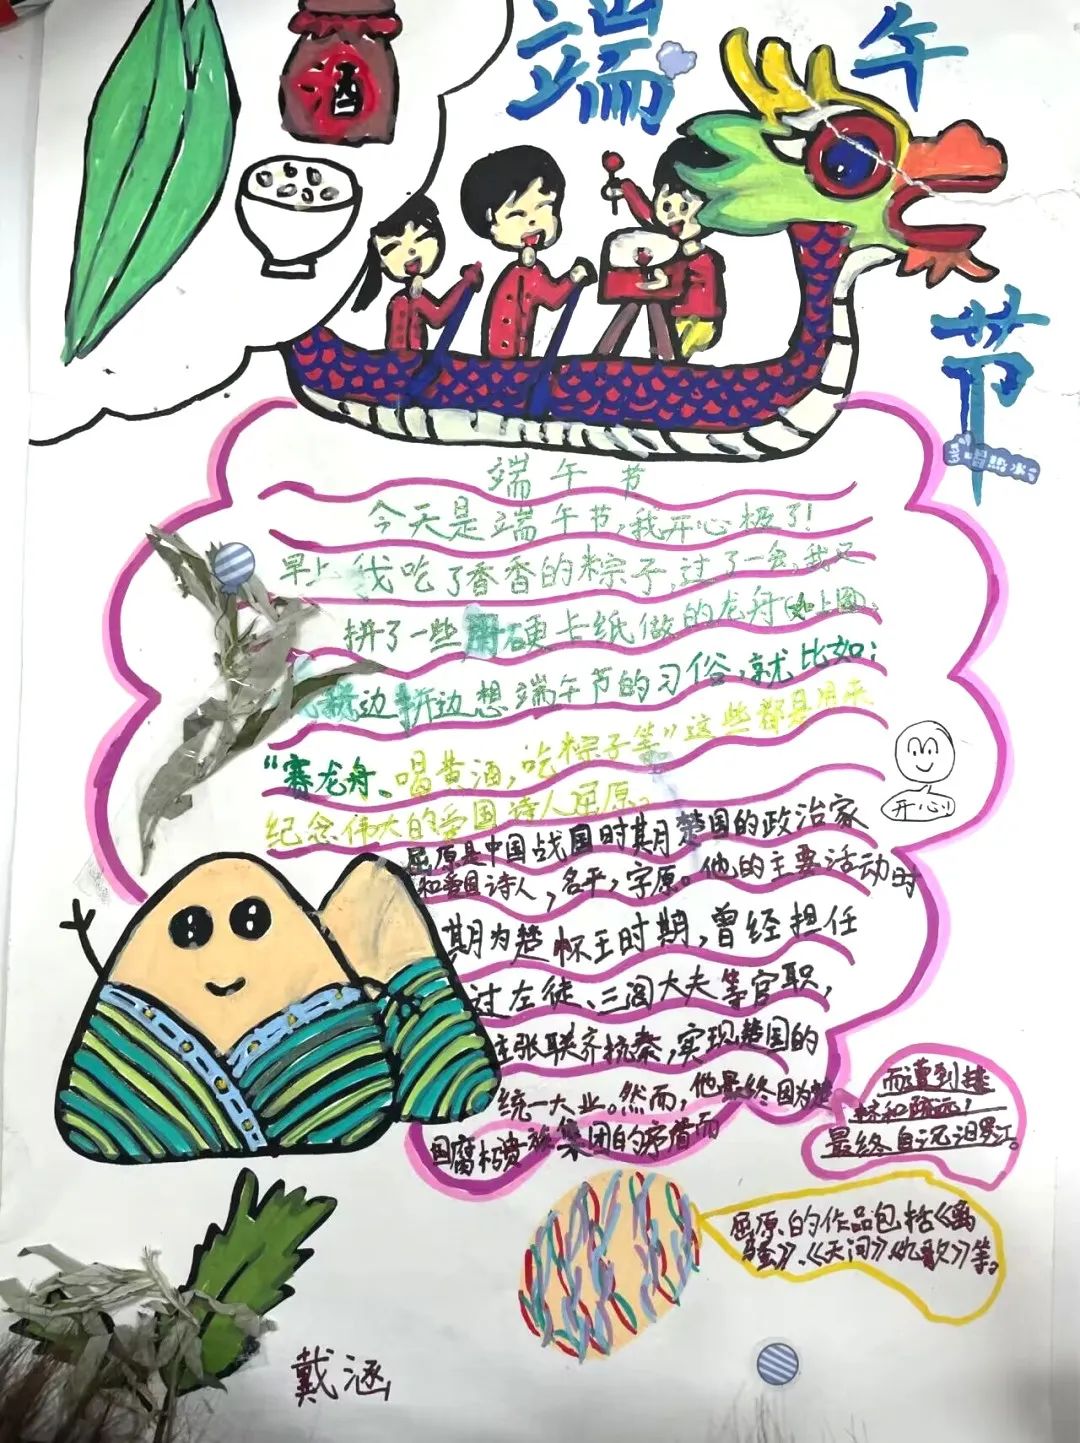 端午节
酒
端午节
今天是端午节，我开心极了！
早上我吃了香香的粽子，过了一会，我又
拼了一些用硬卡纸做的龙舟（如上图）、
拼边拼边想端午节的习俗，就比如：
“赛龙舟、喝黄酒，吃粽子等”这些都是用来
纪念伟大的爱国诗人屈原。
屈原是中国战国时期楚国的政治家
和爱国诗人，名平，字原。他的主要活动时
期为楚怀王时期，曾经担任
过左徒、三闾大夫等官职，
主张联齐抗秦，实现楚国的
统一大业。然而，他最终因为楚
国腐朽贵族集团的
而遭到排
挤和疏远！
最终自沉汨罗江。
开心！
屈原的作品包括《离
骚》、《天问》《九歌》等。
戴涵